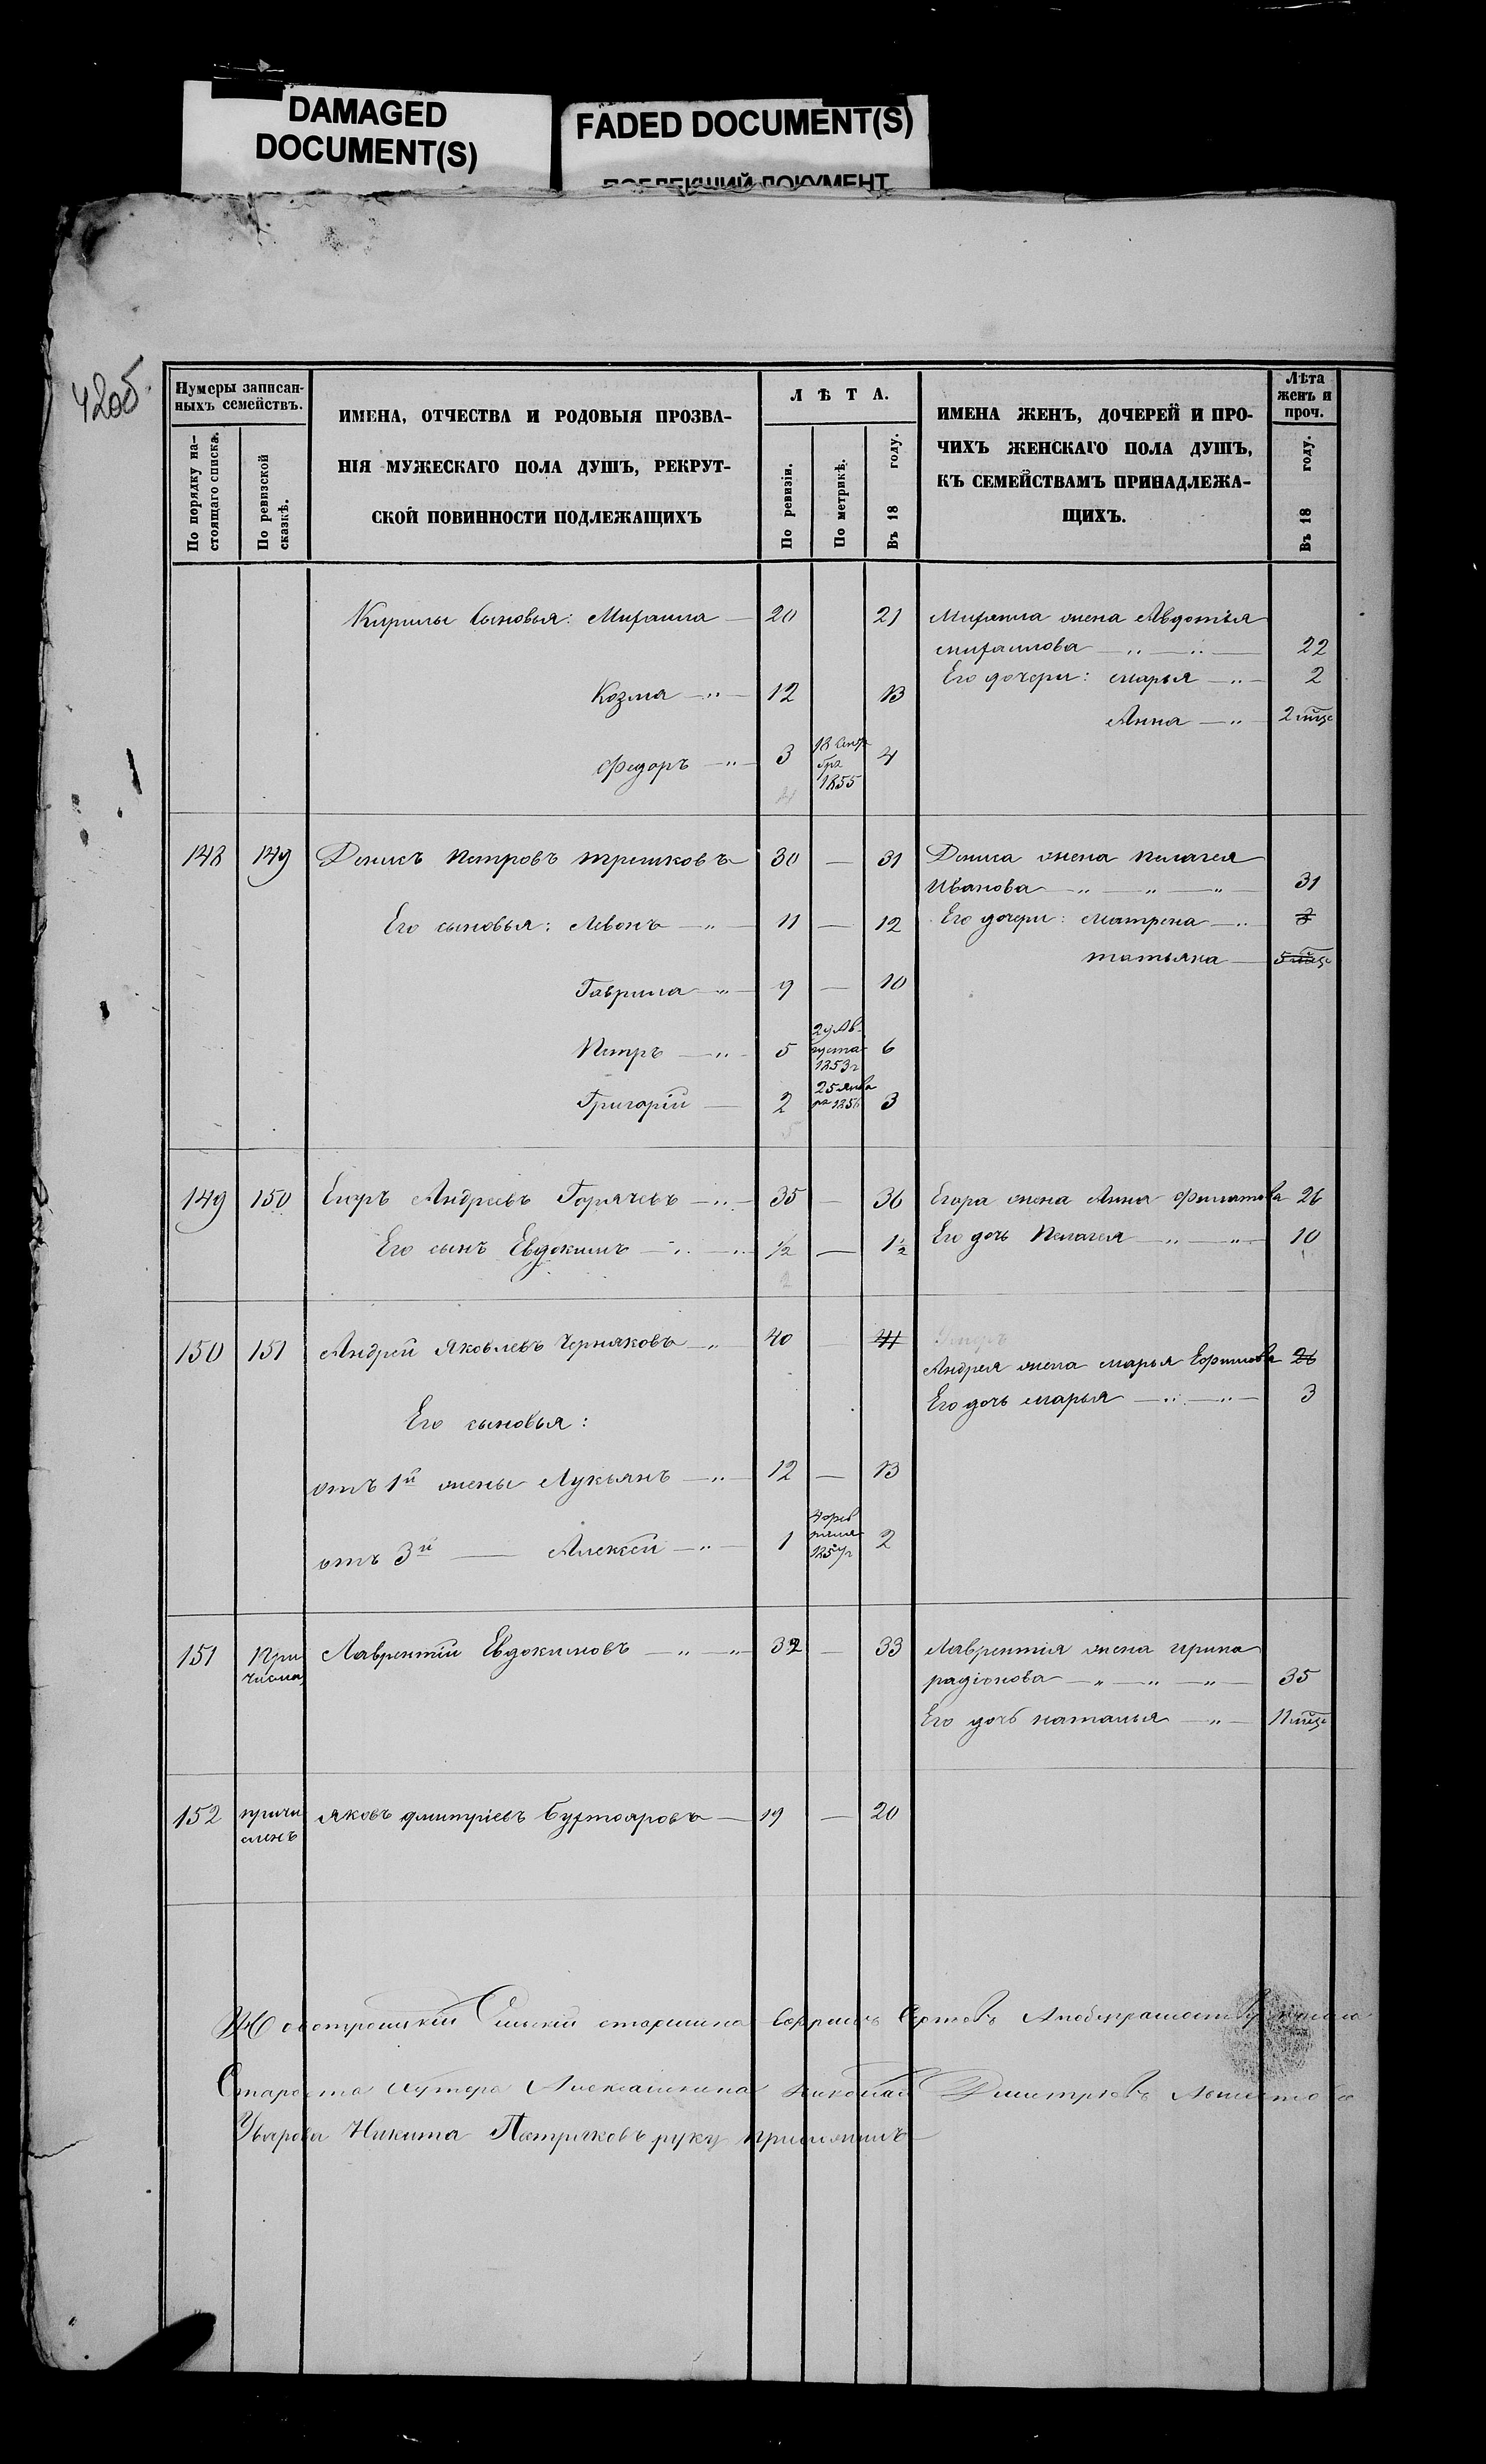 DAMAGED
DOCUMENT(S)
FADED DOCUMENT(S)
42об.
Нумеры записан-
ныхъ семействъ.
По порядку на-
стоящаго списка.
По ревизской
сказкѣ.
ИМЕНА, ОТЧЕСТВА И РОДОВЫЯ ПРОЗВА-
НІЯ МУЖЕСКАГО ПОЛА ДУШЪ, РЕКРУТ-
СКОЙ ПОВИННОСТИ ПОДЛЕЖАЩИХЪ
ЛѢТА.
По ревизіи.
По метрикѣ.
Въ 18 году.
ИМЕНА ЖЕНЪ, ДОЧЕРЕЙ И ПРО-
ЧИХЪ ЖЕНСКАГО ПОЛА ДУШЪ,
КЪ СЕМЕЙСТВАМЪ ПРИНАДЛЕЖА-
ЩИХЪ.
Лѣта
женъ и
проч.
Въ 18 году.
Кирилы сыновья: Михаила — 20 21 Михаила жена Авдотья
Михаилова — „ — „ — 22
Его дочери: Марья — „ — 2
Козма — „ — 12 13
Анна — „ 2 мѣс
Федоръ — „ — 3 18 Сентя
бря
1855 4
4
148 149 Денисъ Петровъ Трешковъ 30 — 31 Дениса жена Пелагея
Иванова — „ — „ — „ — 31
Его сыновья: Левонъ — „ — 11 — 12 Его дочери: Матрена — „
Татьяна — 5 мѣс
Гаврила — „ — 9 — 10
Петръ — „ — 5 29 Ав-
густа
1853 г 6
Григорій — 2 25 Янва
ря 1856 3
5
149 150 Егоръ Андреевъ Горячевъ — „ — 35 — 36 Егора жена Анна Филатова 26
Его сынъ Евдокимъ — „ — „ ½ — 1½ Его дочь Пелагея — „ — „ — 10
2
150 151 Андрей Яковлевъ Черняковъ — „ 40 41
Андрея жена Марья Ефимова 26
Его дочь Марья — „ — „ — 3
Его сыновья:
отъ 1й жены Лукьянъ — „ — 12 — 13
отъ 3й — Алексей — „ — 1 4 фев
раля
1857г 2
151 При
числ. Лаврентій Евдокимовъ — „ — „ 32 — 33 Лаврентія жена Ирина
Радіонова — „ — „ — „ — 35
Его дочь Наталья — „ — 11 мѣс
152 причи
сленъ Яковъ Дмитріевъ Бухтояровъ — 19 — 20
Новотроицкій Сельскій старшина
Староста хутора Алексашкина Николай Дмитріевъ
Уварова Никита Петряковъ руку приложилъ